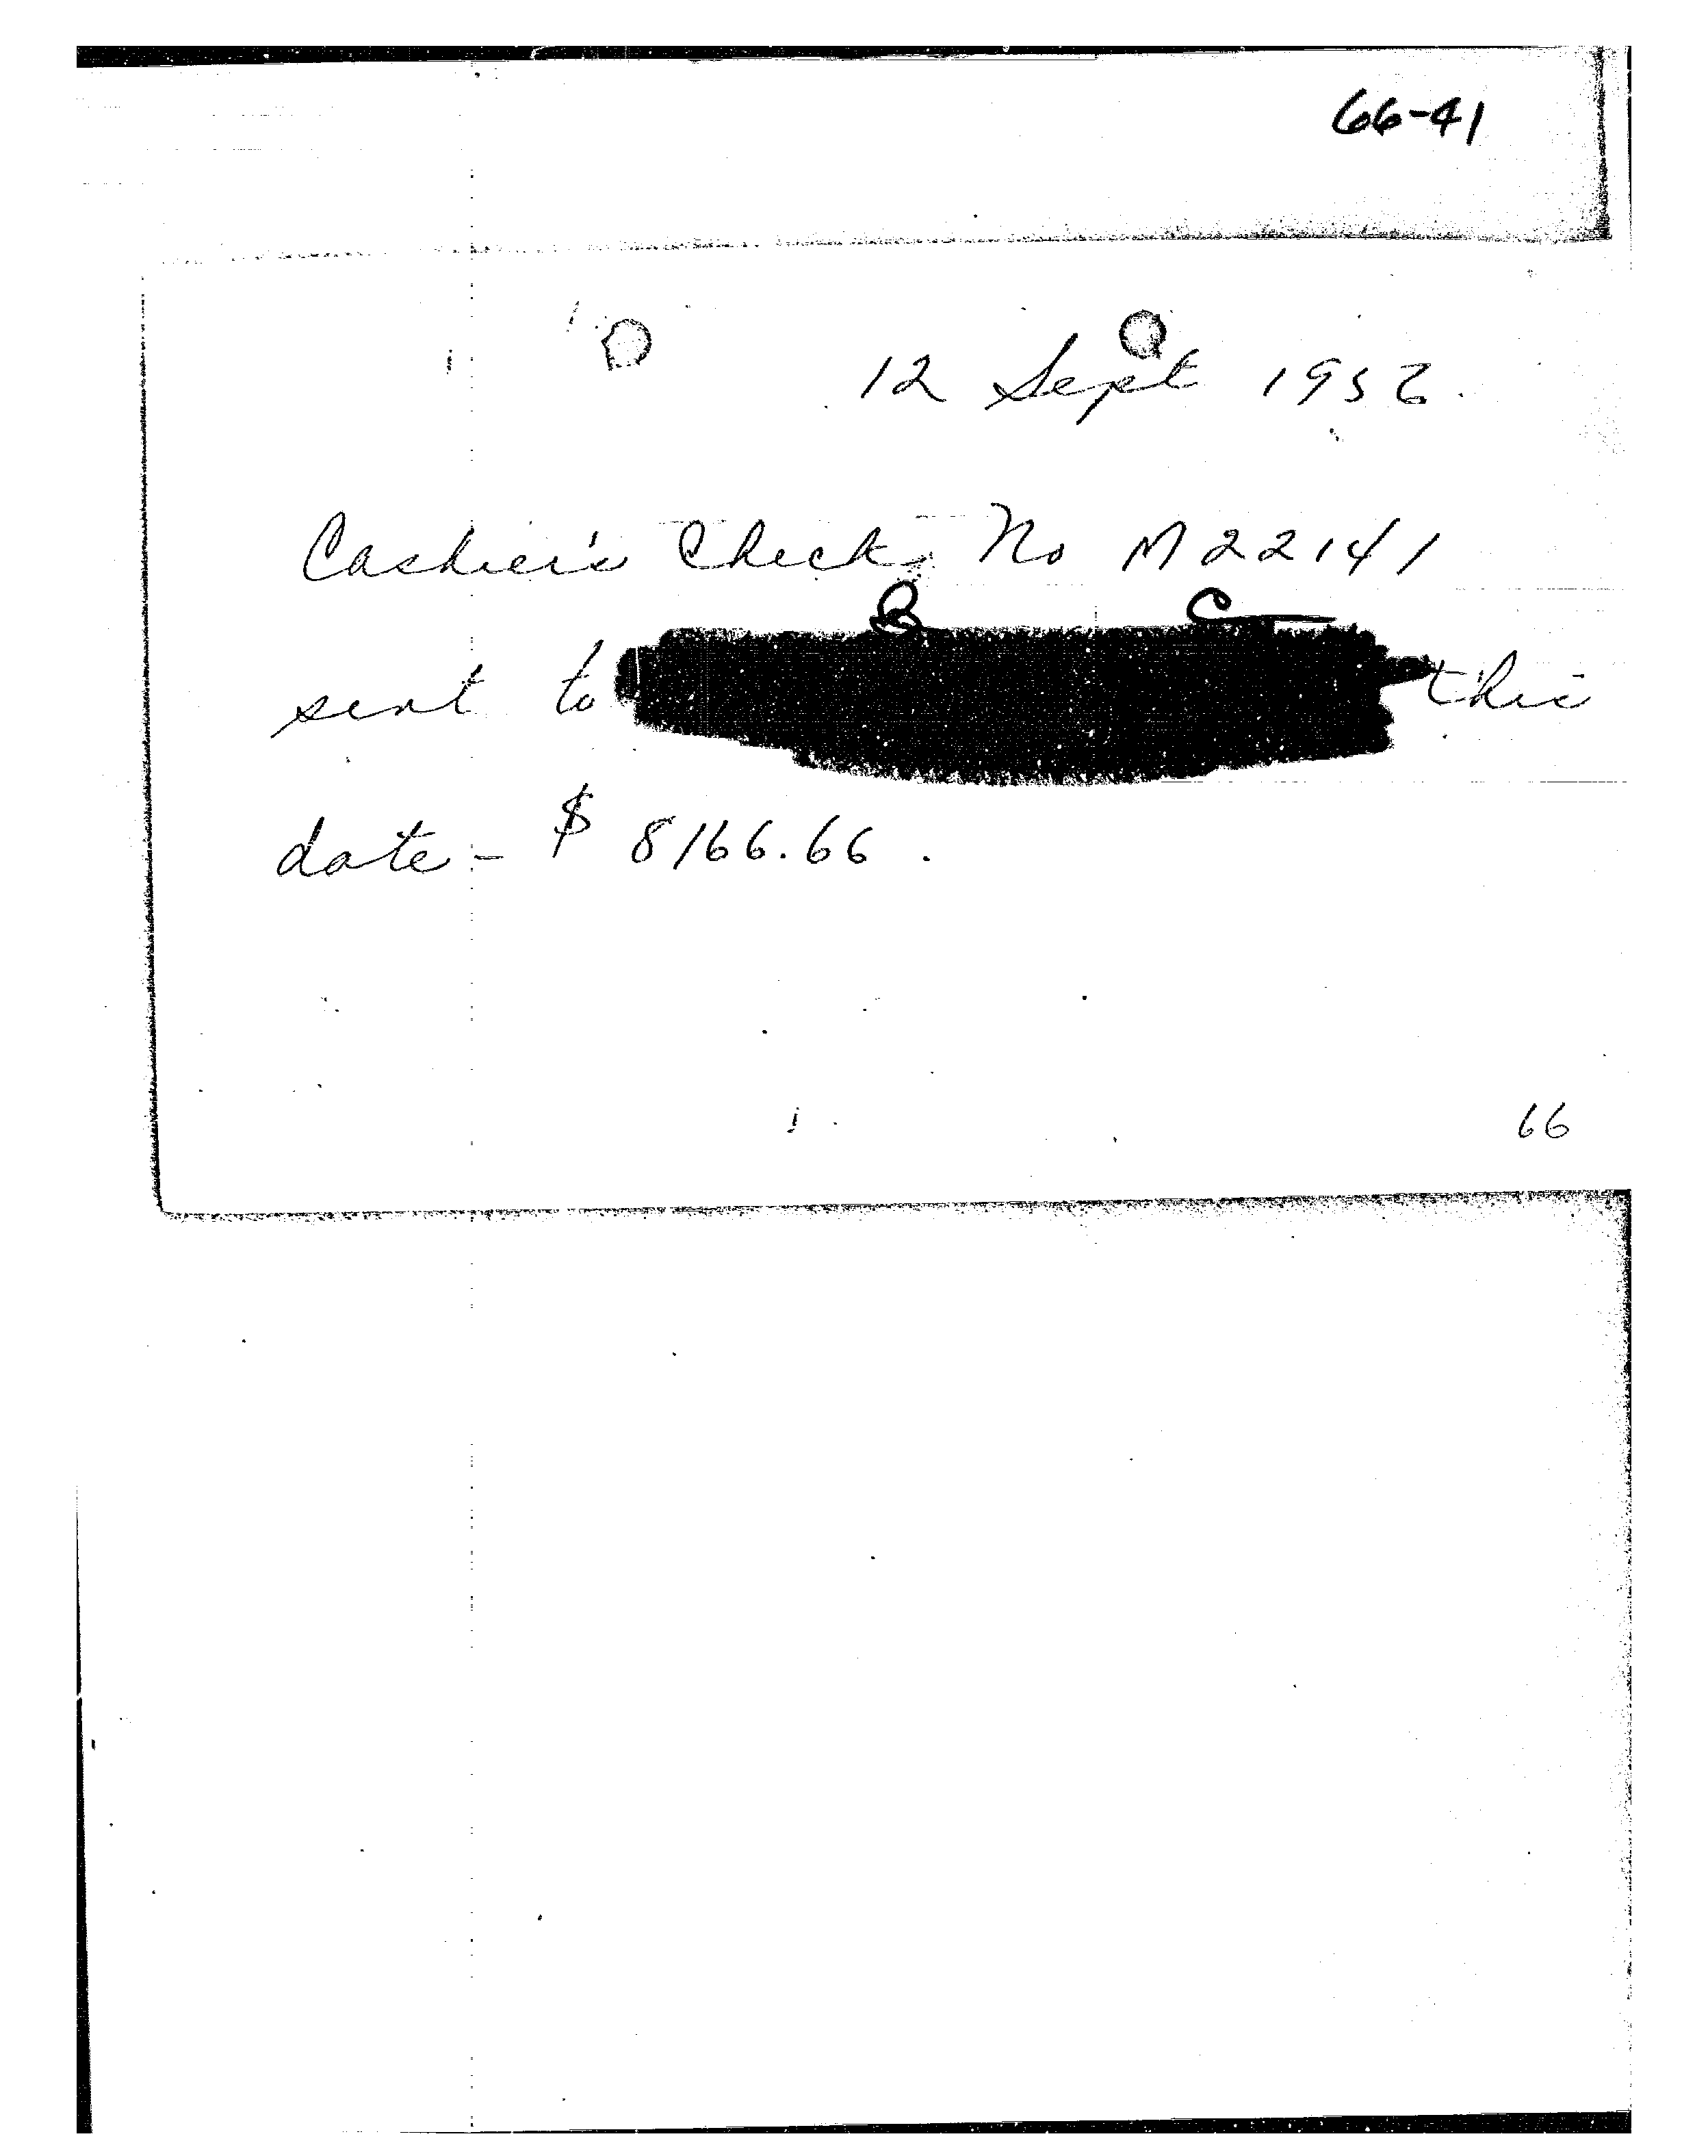 66-41
12 Sept 1952.
Cashier's Check No M22141
B C
sent to this
date - $ 8166.66.
66